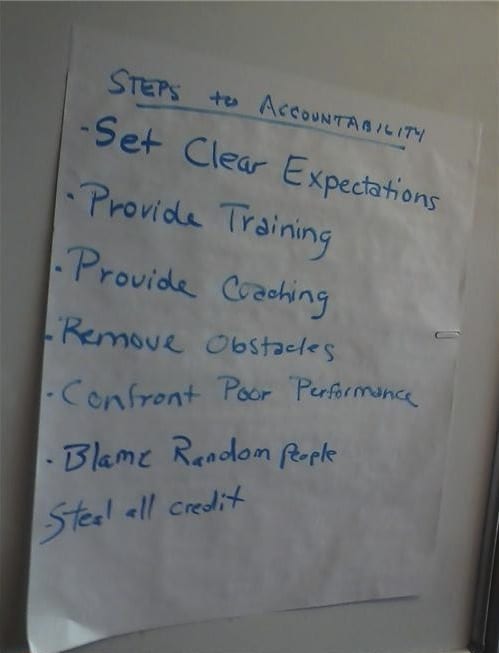 STEPS to ACCOUNTABILITY
- Set Clear Expectations
· Provide Training
· Provide Coaching
· Remove Obstacles
· Confront Poor Performance
· Blame Random People
· Steal all credit